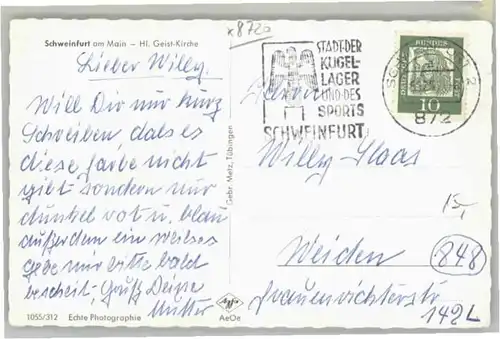 Schweinfurt am Main – Hl. Geist-Kirche
Lieber Willy.
Will Dir nur kurz
Schreiben, dass es
diese Farbe nicht
gibt sondern nur
dunkel rot u. blau
außerdem ein weises
gebe mir bitte bald
bescheit, Gruß Deine
Mutter
1055/312 Echte Photographie
Gebr. Metz, Tübingen
Agfa
AeOe
x872a
STADT DER
KUGEL-
LAGER
UND DES
SPORTS
SCHWEINFURT
DEUTSCHE BUNDESPOST
10
872
Herrn
Willy Haas
15,-
Weiden
848
Frauenrichterstr
142